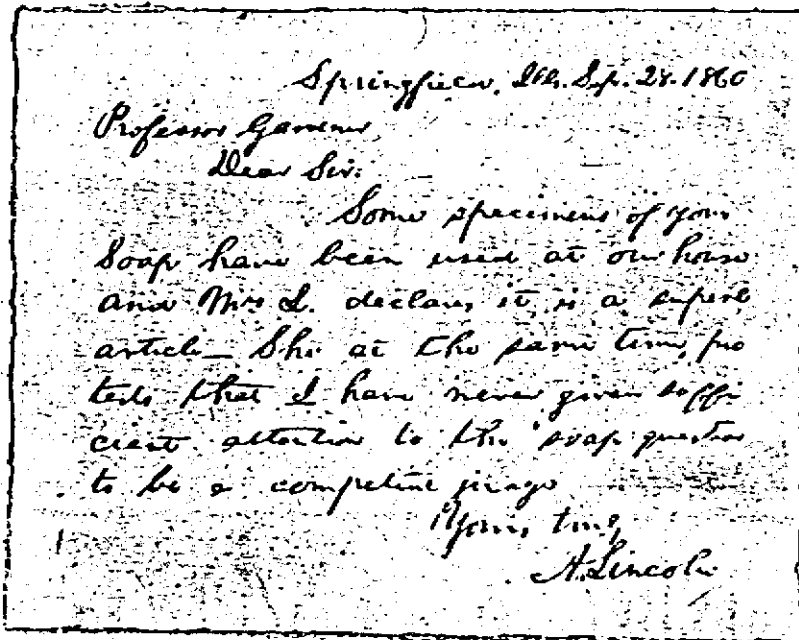 Springfield, Ills. Sep. 28. 1860
Professor Gardner
Dear Sir:
Some specimens of your
Soap have been used at our house
and Mrs L. declares it is a superb
article— She at the same time, pro
tests that I have never given suffi
cient attention to the "soap question"
to be a competent judge
Yours truly
A. Lincoln